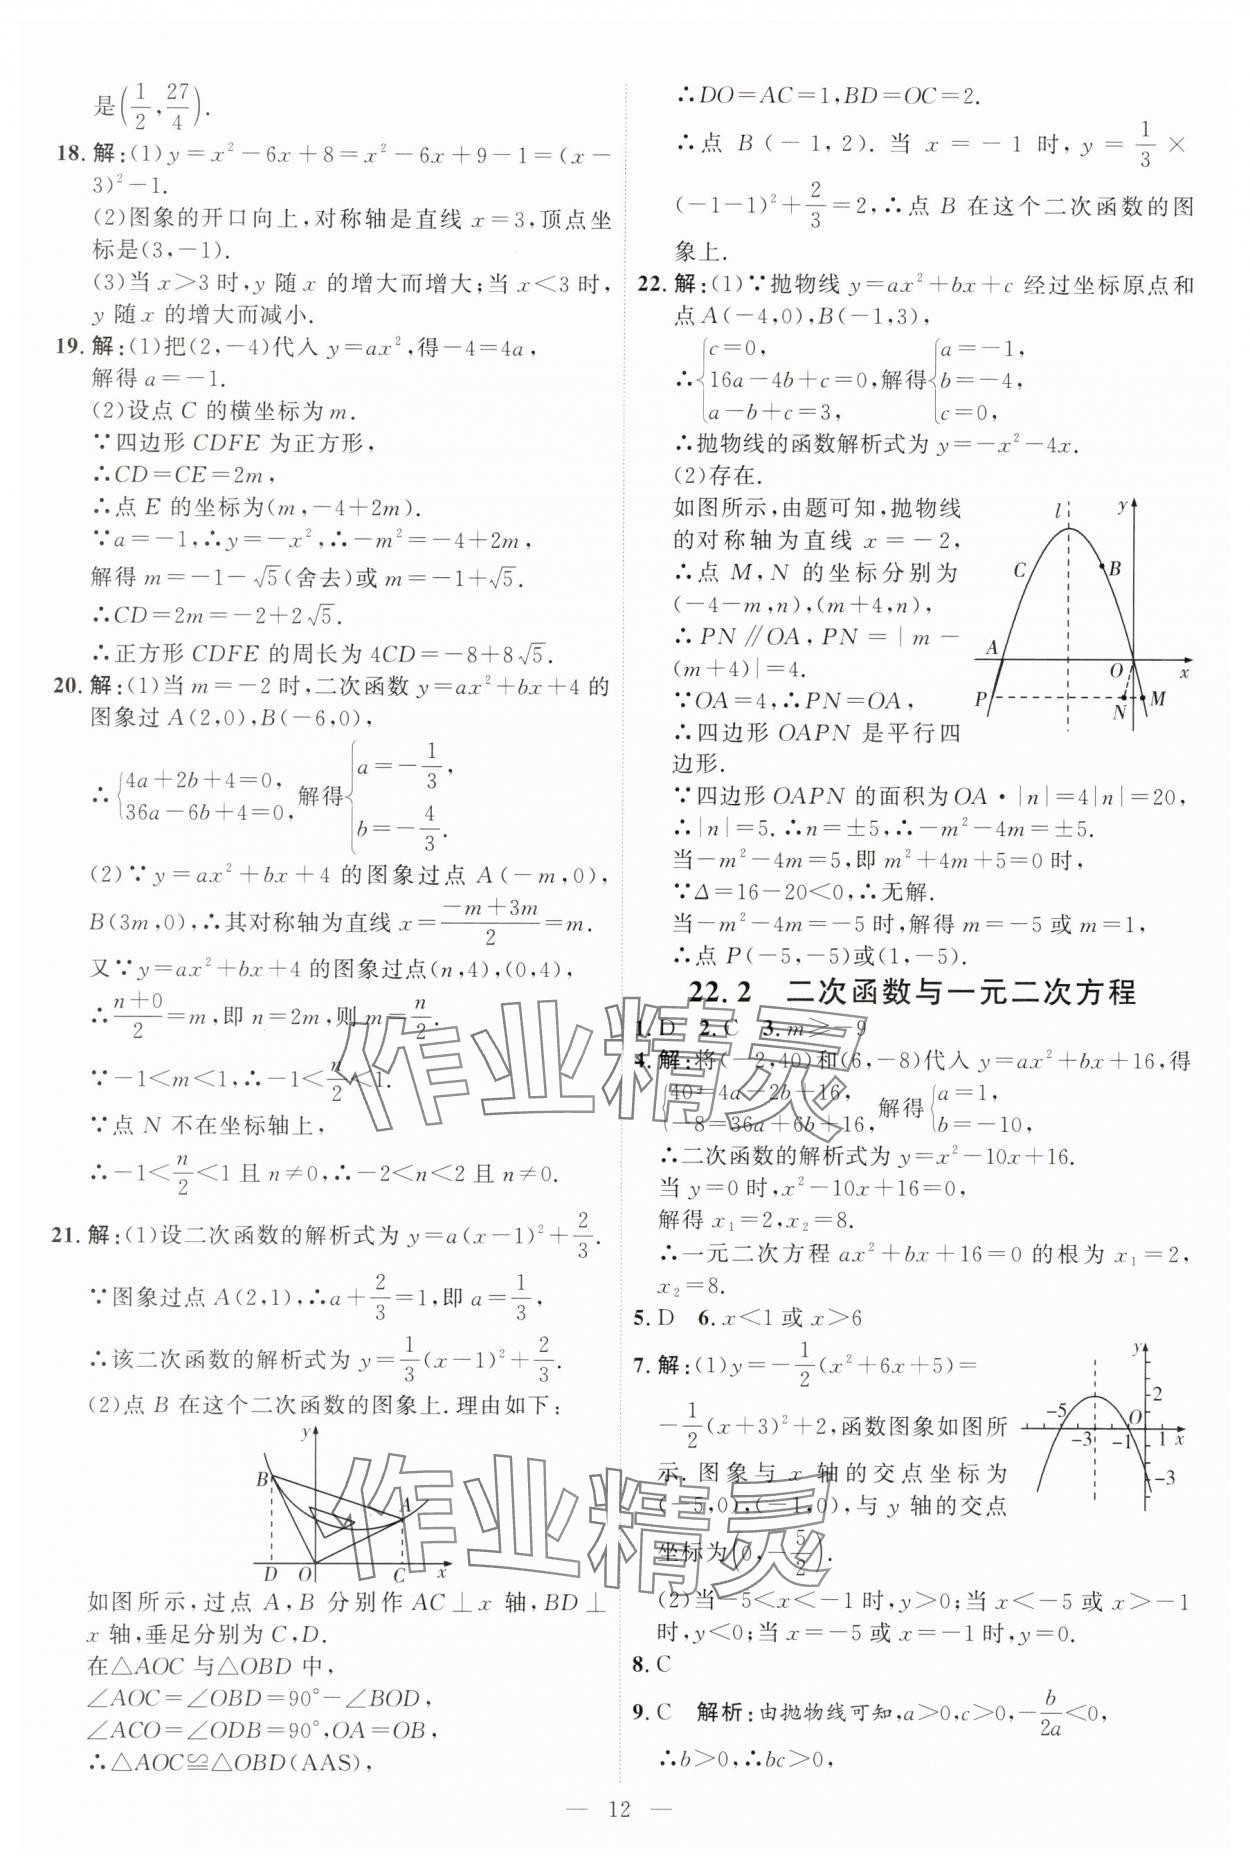 是(1/2,27/4).
18. 解:(1)y=x²-6x+8=x²-6x+9-1=(x-
3)²-1.
(2)图象的开口向上,对称轴是直线 x=3,顶点坐
标是(3,-1).
(3)当 x>3 时,y 随 x 的增大而增大;当 x<3 时,
y 随 x 的增大而减小.
19. 解:(1)把(2,-4)代入 y=ax²,得-4=4a,
解得 a=-1.
(2)设点 C 的横坐标为 m.
∵四边形 CDFE 为正方形,
∴CD=CE=2m,
∴点 E 的坐标为(m,-4+2m).
∵a=-1,∴y=-x²,∴-m²=-4+2m,
解得 m=-1-√5(舍去)或 m=-1+√5.
∴CD=2m=-2+2√5.
∴正方形 CDFE 的周长为 4CD=-8+8√5.
20. 解:(1)当 m=-2 时,二次函数 y=ax²+bx+4 的
图象过 A(2,0),B(-6,0),
∴{4a+2b+4=0, 36a-6b+4=0, 解得{a=-1/3, b=-4/3.
(2)∵y=ax²+bx+4 的图象过点 A(-m,0),
B(3m,0),∴其对称轴为直线 x=(-m+3m)/2=m.
又∵y=ax²+bx+4 的图象过点(n,4),(0,4),
∴(n+0)/2=m,即 n=2m,则 m=n/2.
∵-1<m<1,∴-1<n/2<1.
∵点 N 不在坐标轴上,
∴-1<n/2<1 且 n≠0,∴-2<n<2 且 n≠0.
21. 解:(1)设二次函数的解析式为 y=a(x-1)²+2/3.
∵图象过点 A(2,1),∴a+2/3=1,即 a=1/3,
∴该二次函数的解析式为 y=1/3(x-1)²+2/3.
(2)点 B 在这个二次函数的图象上.理由如下:
y
B
A
D O C x
如图所示,过点 A,B 分别作 AC⊥x 轴,BD⊥
x 轴,垂足分别为 C,D.
在△AOC 与△OBD 中,
∠AOC=∠OBD=90°-∠BOD,
∠ACO=∠ODB=90°,OA=OB,
∴△AOC≌△OBD(AAS),
∴DO=AC=1,BD=OC=2.
∴点 B(-1,2). 当 x=-1 时,y=1/3×
(-1-1)²+2/3=2,∴点 B 在这个二次函数的图
象上.
22. 解:(1)∵抛物线 y=ax²+bx+c 经过坐标原点和
点 A(-4,0),B(-1,3),
∴{c=0, 16a-4b+c=0, a-b+c=3, 解得{a=-1, b=-4, c=0,
∴抛物线的函数解析式为 y=-x²-4x.
(2)存在.
如图所示,由题可知,抛物线
的对称轴为直线 x=-2,
∴点 M,N 的坐标分别为
(-4-m,n),(m+4,n),
∴PN∥OA,PN=|m-
(m+4)|=4.
∵OA=4,∴PN=OA,
∴四边形 OAPN 是平行四
边形.
l y
C B
A O x
P N M
∵四边形 OAPN 的面积为 OA·|n|=4|n|=20,
∴|n|=5.∴n=±5,∴-m²-4m=±5.
当-m²-4m=5,即 m²+4m+5=0 时,
∵Δ=16-20<0,∴无解.
当-m²-4m=-5 时,解得 m=-5 或 m=1,
∴点 P(-5,-5)或(1,-5).
22.2 二次函数与一元二次方程
1. D 2. C 3. m≥-9
4. 解:将(-2,40)和(6,-8)代入 y=ax²+bx+16,得
{40=4a-2b+16, -8=36a+6b+16, 解得{a=1, b=-10,
∴二次函数的解析式为 y=x²-10x+16.
当 y=0 时,x²-10x+16=0,
解得 x₁=2,x₂=8.
∴一元二次方程 ax²+bx+16=0 的根为 x₁=2,
x₂=8.
5. D 6. x<1 或 x>6
7. 解:(1)y=-1/2(x²+6x+5)=
-1/2(x+3)²+2,函数图象如图所
示. 图象与 x 轴的交点坐标为
(-5,0),(-1,0),与 y 轴的交点
坐标为(0,-5/2).
y
2
-5 O
-3 -1 1 x
-3
(2)当-5<x<-1 时,y>0;当 x<-5 或 x>-1
时,y<0;当 x=-5 或 x=-1 时,y=0.
8. C
9. C 解析:由抛物线可知,a>0,c>0,-b/2a<0,
∴b>0,∴bc>0,
— 12 —
作业精灵
作业精灵